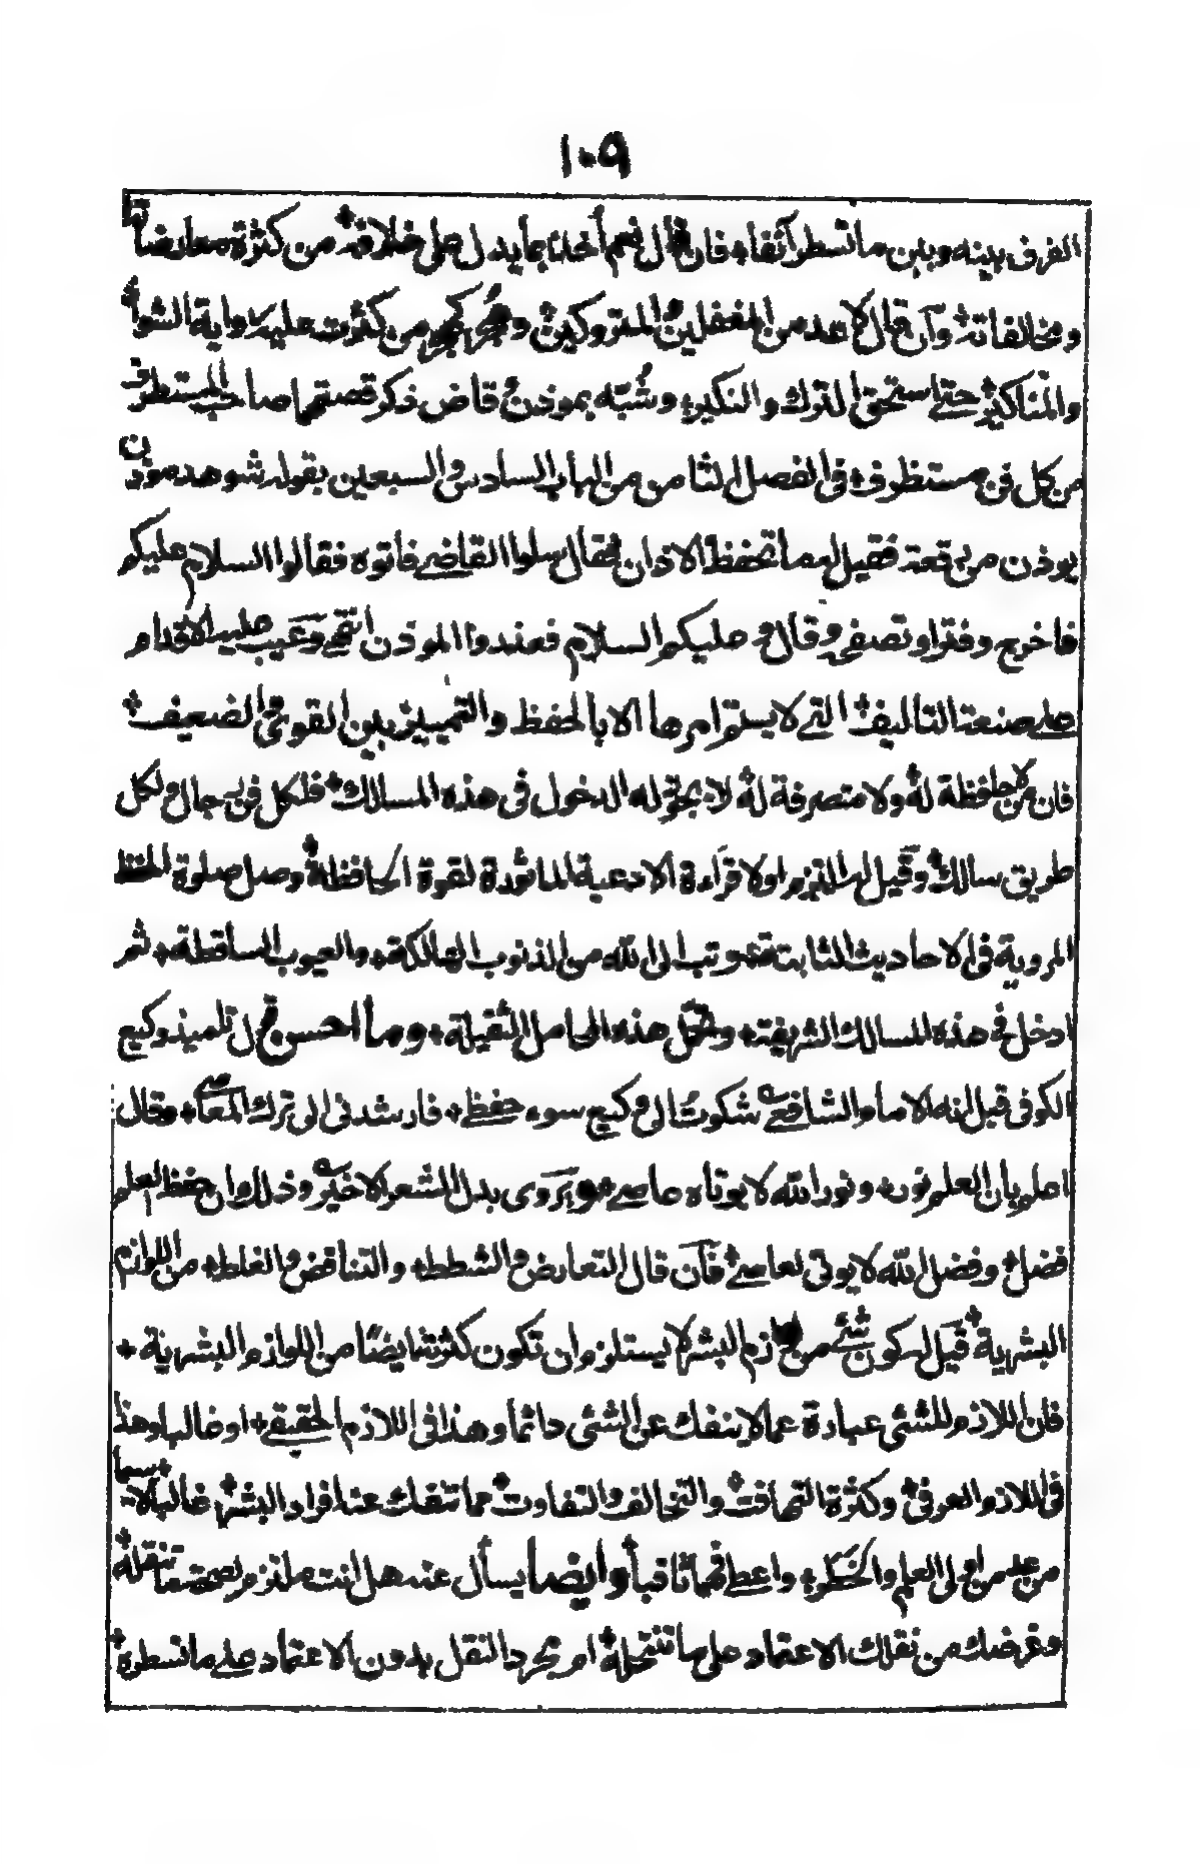 ١٠٩
الفرق بينه وبين ما تسطر آنفا، فان قال نعم أخذنا بما يدل على خلافة من كثرة معارضاته
ومخالفاته وان قال لا عد من المغفلين المتروكين و من كثرت عليه رواية الشواذ
والمناكير حتى استحق الترك والنكير، وشبه بموذن قاض ذكر قصتهما صاحب المستطرف
من كل فن مستظرف في الفصل الثامن من الباب السادس والسبعين بقوله شوهد موذن
يوذن من رقعة فقيل له ما تحفظ الاذان فقال سلوا القاضي فاتوه فقالوا السلام عليكم
فاخرج دفترا وتصفح وقال وعليكم السلام فعذروا الموذن انتهى وعيب عليه الاقدام
على صنعة التاليف التي لا يستتم امرها الا بالحفظ والتمييز بين القوي والضعيف
فان من لا حافظة له ولا متصرفة له لا يحق له الدخول في هذه المسالك فلكل فن رجال ولكل
طريق سالك وقيل له التزم اولا قراءة الادعية الماثورة لقوة الحافظة وصل صلوة الحفظ
المروية في الاحاديث الثابتة وتب الى الله من الذنوب الهالكة، والعيوب الساقطة، ثم
ادخل في هذه المسالك الشريفة، وتحمل هذه المحامل الثقيلة، وما احسن قول تلميذ وكيع
الكوفي قيل انه الامام الشافعي شكوت الى وكيع سوء حفظي، فارشدني الى ترك المعاصي، وقال
اعلم بان العلم نور، ونور الله لا يوتاه عاصي، ويروى بدل الشعر الاخير وذلك ان حفظ العلم
فضل، وفضل الله لا يوتى لعاصي، فان قال التعارض والشطط، والتناقض والغلط، من اللوازم
البشرية، قيل له كون شئ من لوازم البشر لا يستلزم ان تكون كثرته ايضا من اللوازم البشرية،
فان اللازم للشئ عبارة عما لا ينفك عن الشئ دائما وهذا في اللازم الحقيقي، او غالبا وهذا
في اللازم العرفي، وكثرة التهافت والتخالف والتفاوت مما تنفك عنه افراد البشر غالبا، لا سيما
من علم من اولى العلم والخطر، واعطي فهما ثاقبا، وأيضا يسأل عنه هل انت ملتزم لصحة ما تنقله،
وغرضك من نقلك الاعتماد على ما تنتحله، ام مجرد النقل بدون الاعتماد على ما تسطره،